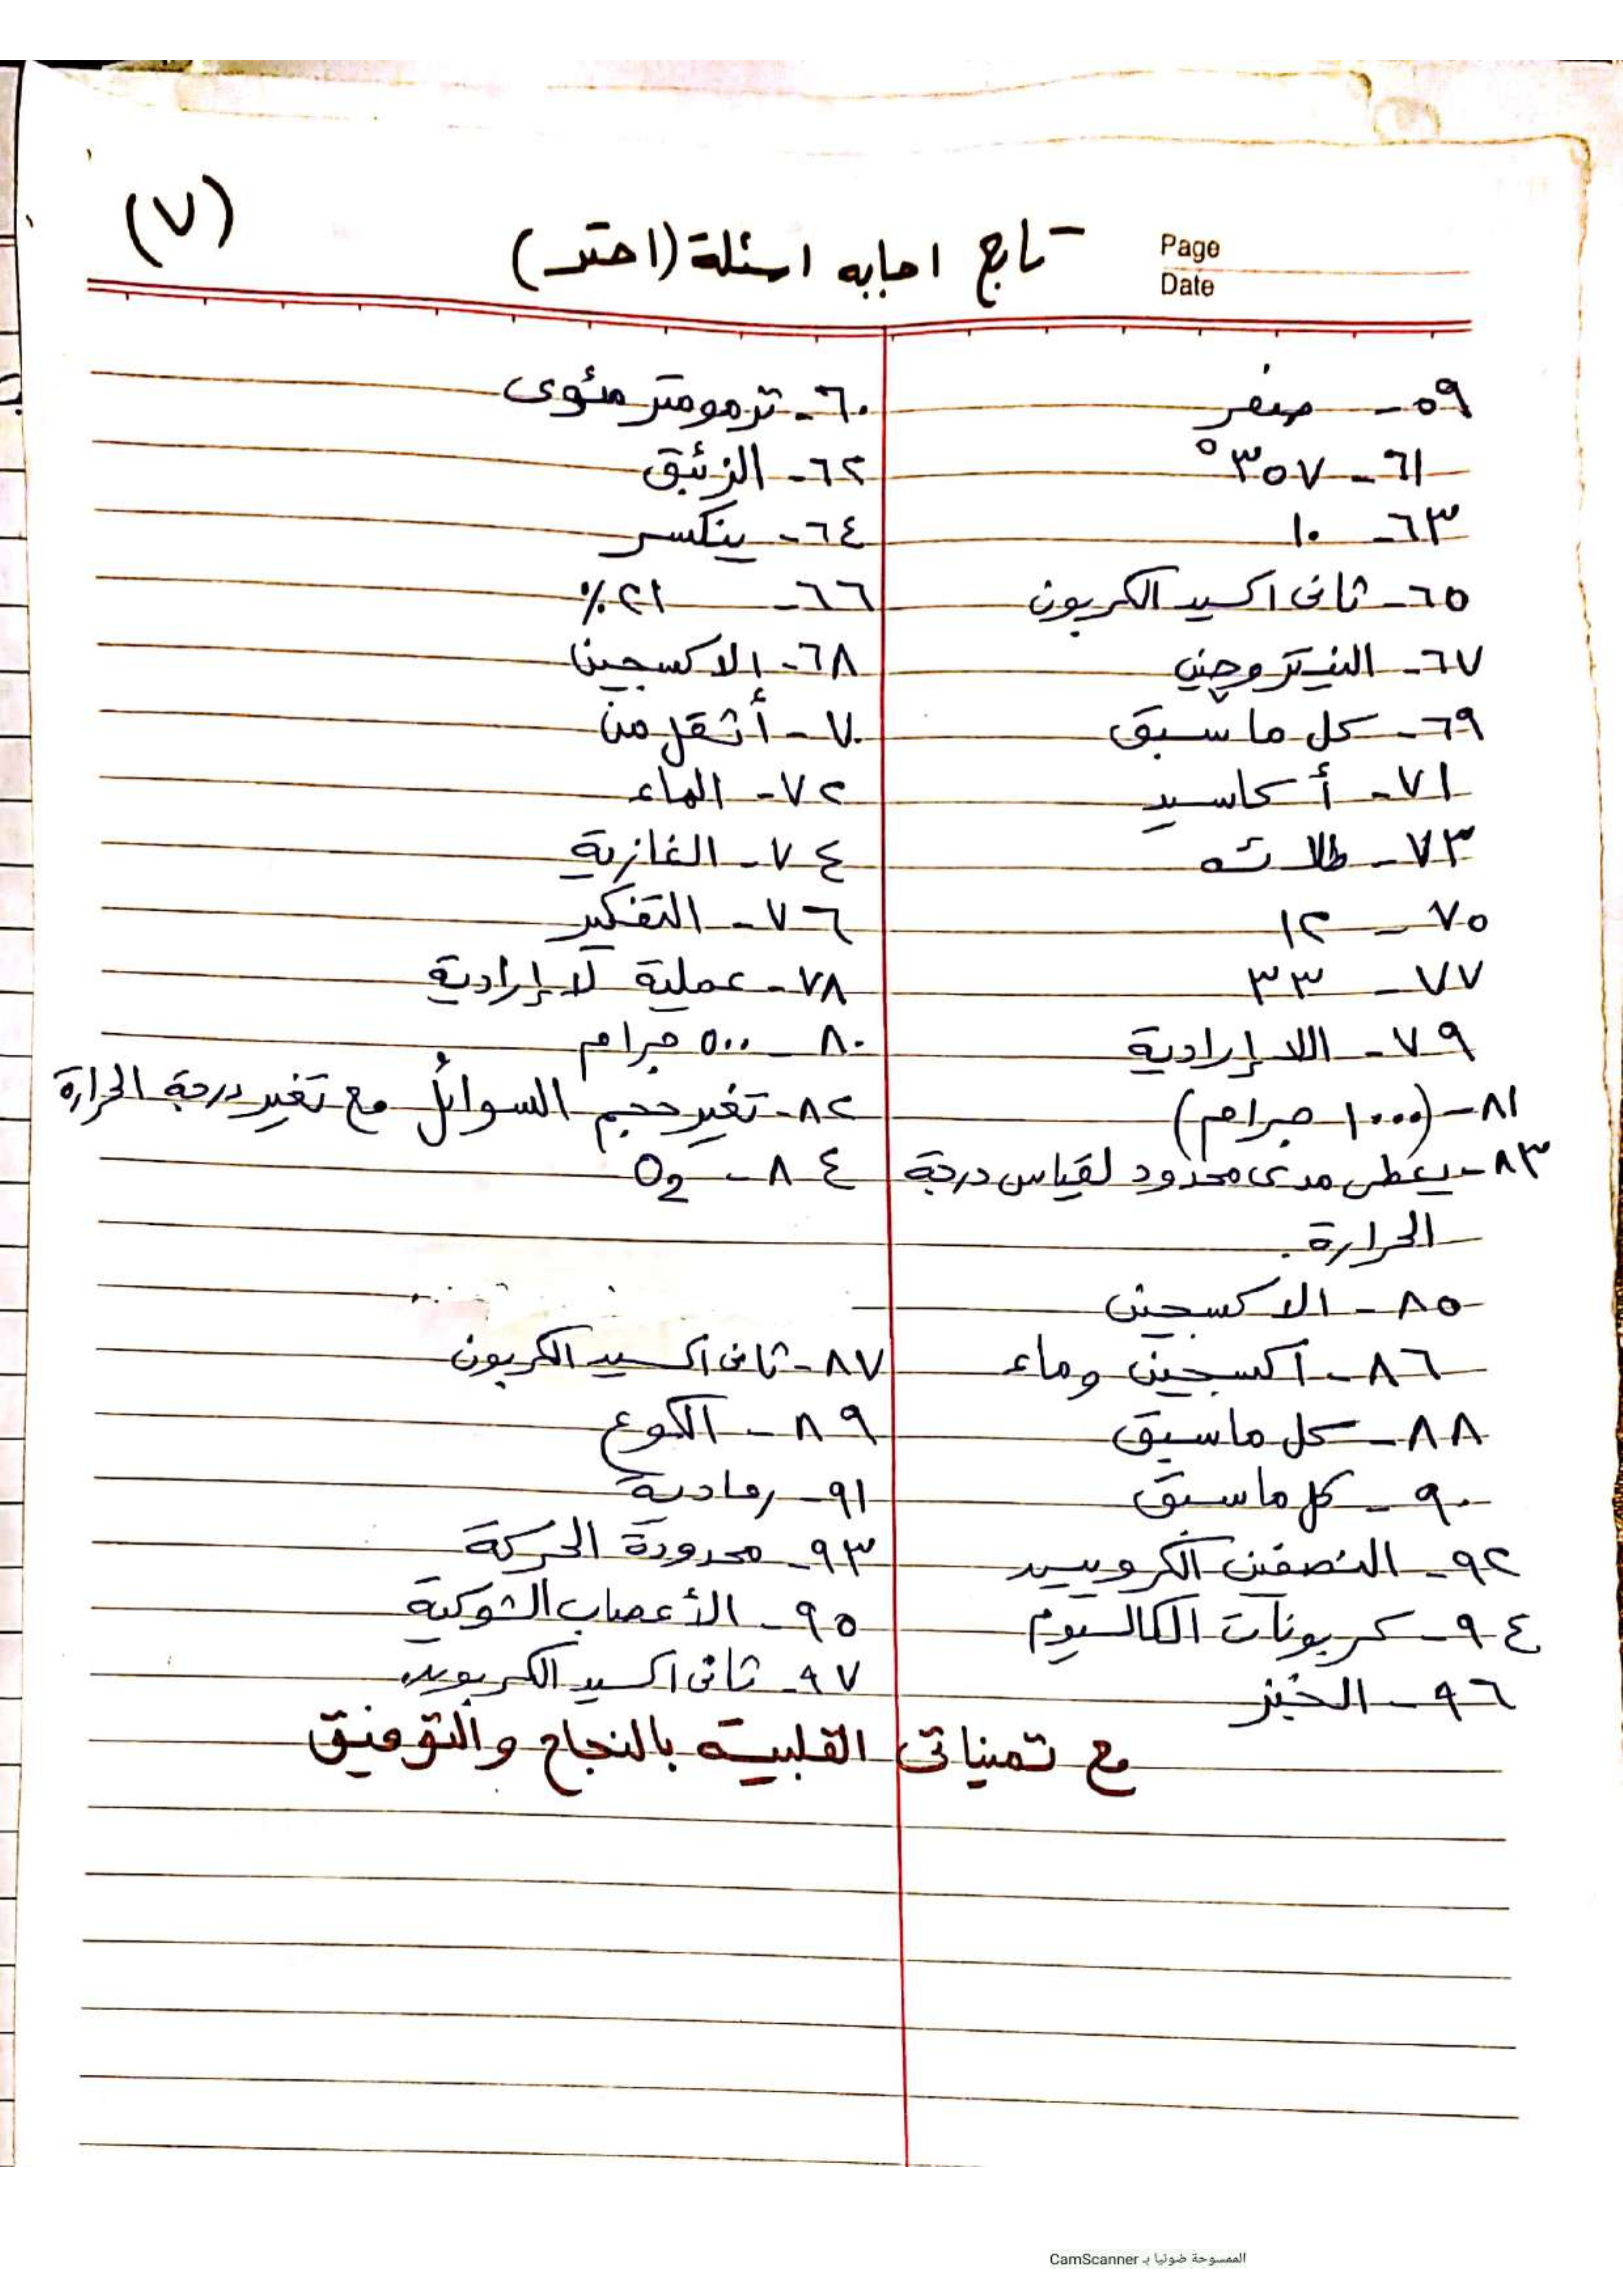 (٧)
تابع اجابه اسئلة (اختر)
Page
Date
٥٩- صفر
٦٠- ترمومتر مئوى
٦١- ٣٥٧°
٦٢- الزئبق
٦٣- ١٠
٦٤- ينكسر
٦٥- ثانى اكسيد الكربون
٦٦- ٢١٪
٦٧- النيتروجين
٦٨- الاكسجين
٦٩- كل ما سبق
٧٠- أثقل من
٧١- أكاسيد
٧٢- الماء
٧٣- ثلاثه
٧٤- الغازية
٧٥- ١٢
٧٦- التفكير
٧٧- ٣٣
٧٨- عملية لا إرادية
٧٩- اللا إرادية
٨٠- ٥٠٠ جرام
٨١- (١٠٠٠ جرام)
٨٢- تغير حجم السوائل مع تغير درجة الحرارة
٨٣- يعطى مدى محدود لقياس درجة
الحرارة.
٨٤- O2
٨٥- الاكسجين
٨٦- اكسجين وماء
٨٧- ثانى اكسيد الكربون
٨٨- كل ماسبق
٨٩- الكوع
٩٠- كل ماسبق
٩١- رمادية
٩٢- النصفين الكرويين
٩٣- محدودة الحركة
٩٤- كربونات الكالسيوم
٩٥- الأعصاب الشوكية
٩٦- الخبز
٩٧- ثانى اكسيد الكربون
مع تمنياتى القلبية بالنجاح والتوفيق
الممسوحة ضوئيا بـ CamScanner